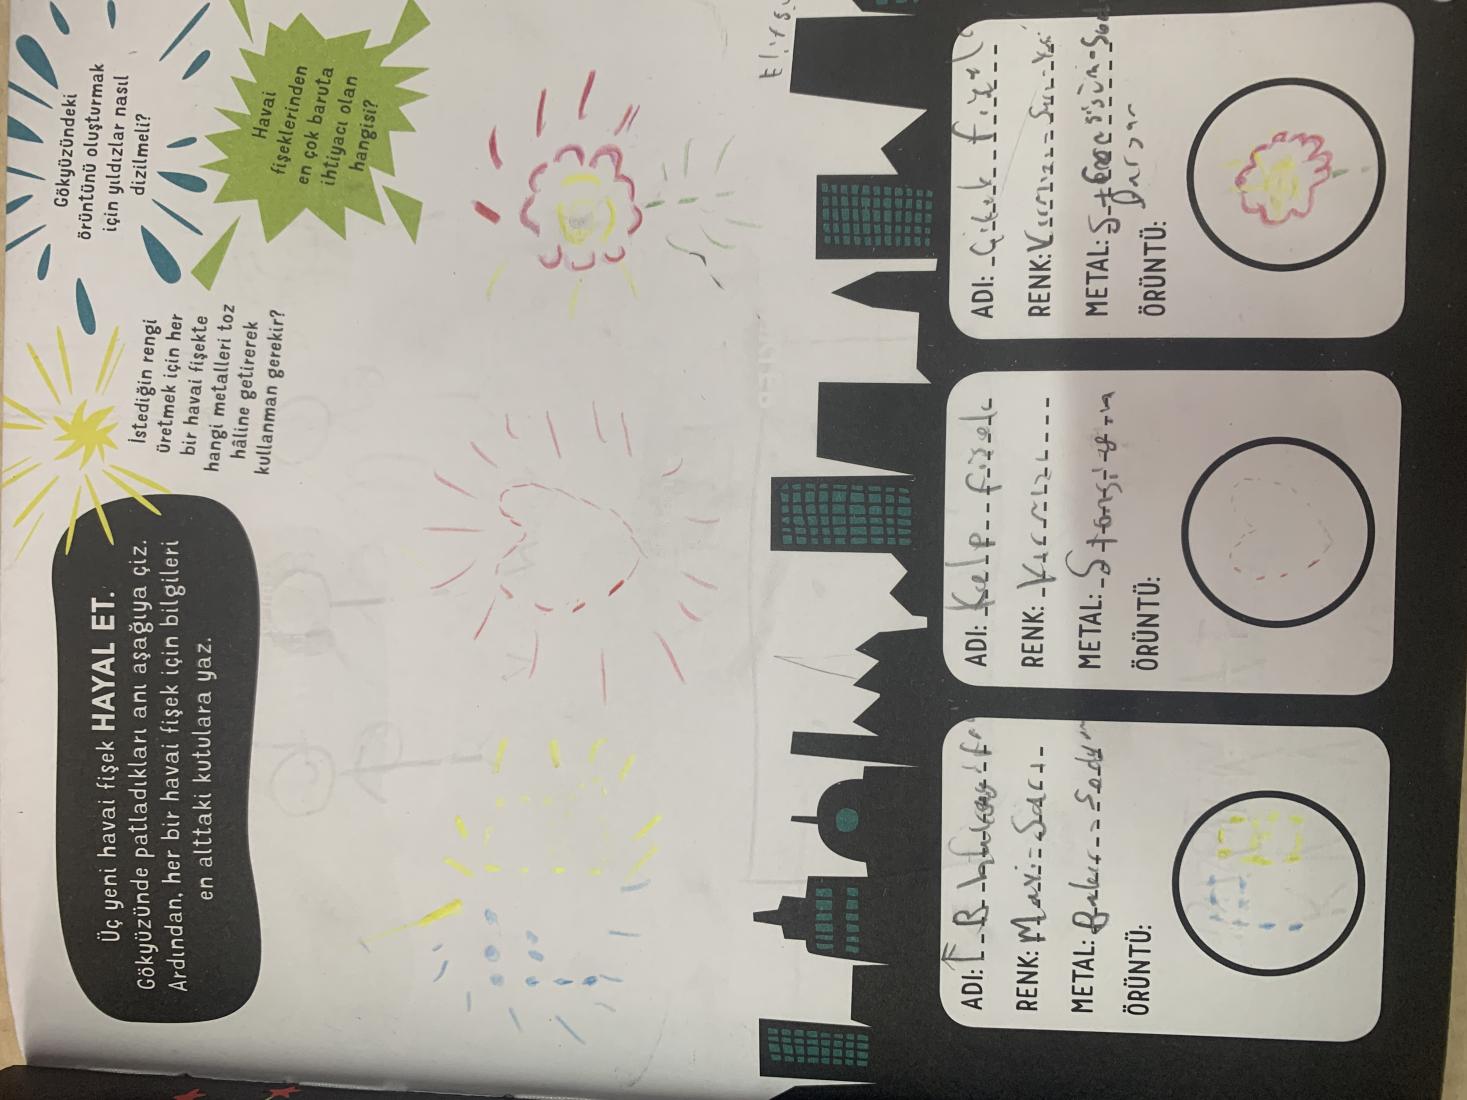 Üç yeni havai fişek HAYAL ET.
Gökyüzünde patladıkları anı aşağıya çiz.
Ardından, her bir havai fişek için bilgileri
en alttaki kutulara yaz.
İstediğin rengi
üretmek için her
bir havai fişekte
hangi metalleri toz
hâline getirerek
kullanman gerekir?
Gökyüzündeki
örüntünü oluşturmak
için yıldızlar nasıl
dizilmeli?
Havai
fişeklerinden
en çok baruta
ihtiyacı olan
hangisi?
ADI:
RENK: Mavi - Sarı
METAL: Bakır - Sodyum
ÖRÜNTÜ:
ADI: Kalp fişek
RENK: Kırmızı
METAL:
ÖRÜNTÜ:
ADI: Çiçek
RENK: Kırmızı - Sarı
METAL:
ÖRÜNTÜ: